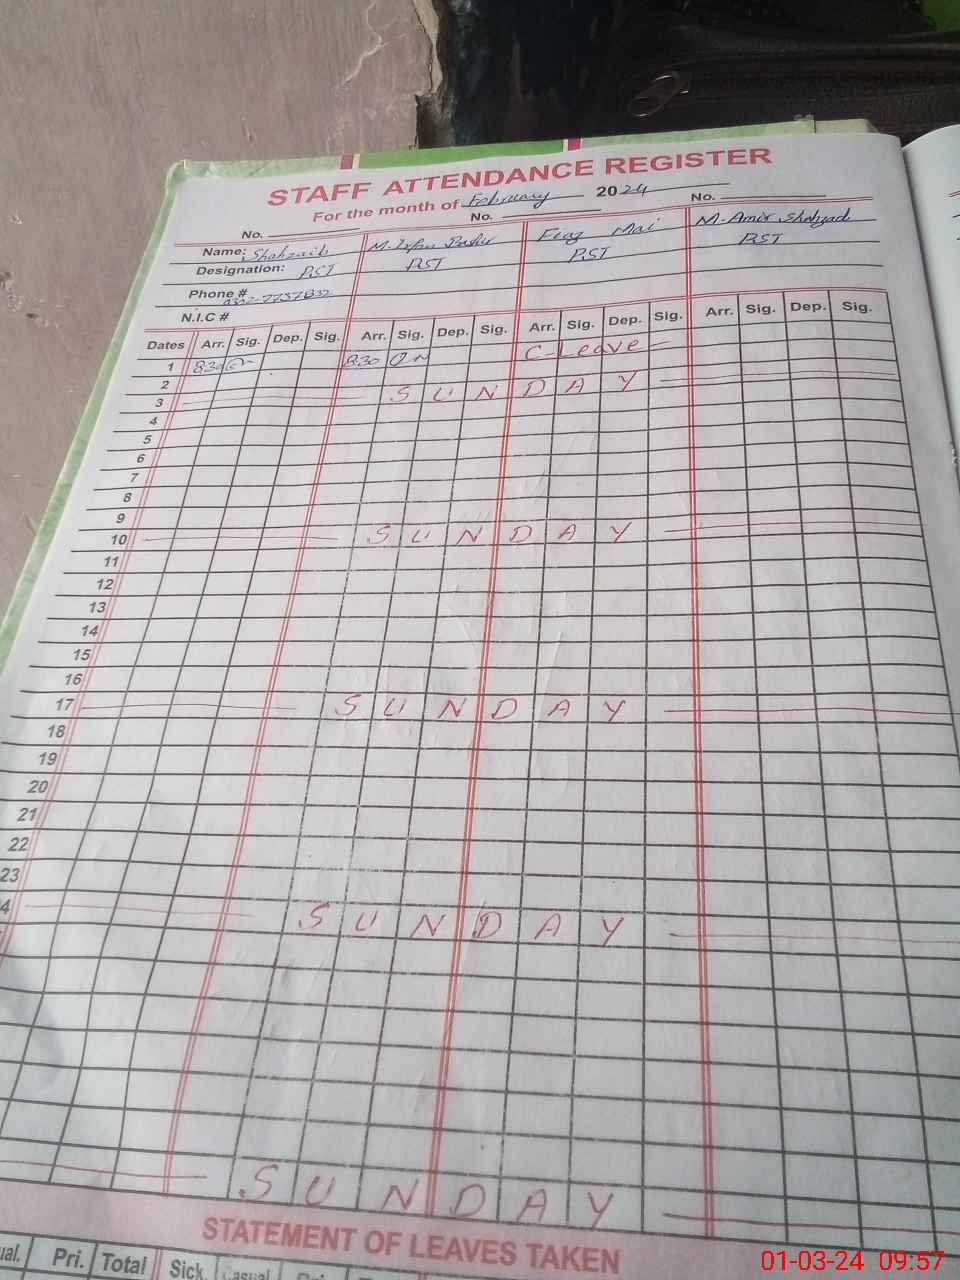 STAFF ATTENDANCE REGISTER
For the month of February 2024
No. No. No.
Name: Shahzaib M. Irfan Bashir Fiaz Mai M. Amir Shahzad
Designation: PST PST PST PST
Phone #
N.I.C #
Dates Arr. Sig. Dep. Sig. Arr. Sig. Dep. Sig. Arr. Sig. Dep. Sig. Arr. Sig. Dep. Sig.
1 830 830 C-Leave
2
3 SUNDAY
4
5
6
7
8
9
10 SUNDAY
11
12
13
14
15
16
17 SUNDAY
18
19
20
21
22
23
4 SUNDAY
SUNDAY
STATEMENT OF LEAVES TAKEN
ual. Pri. Total Sick. Casual
01-03-24 09:57